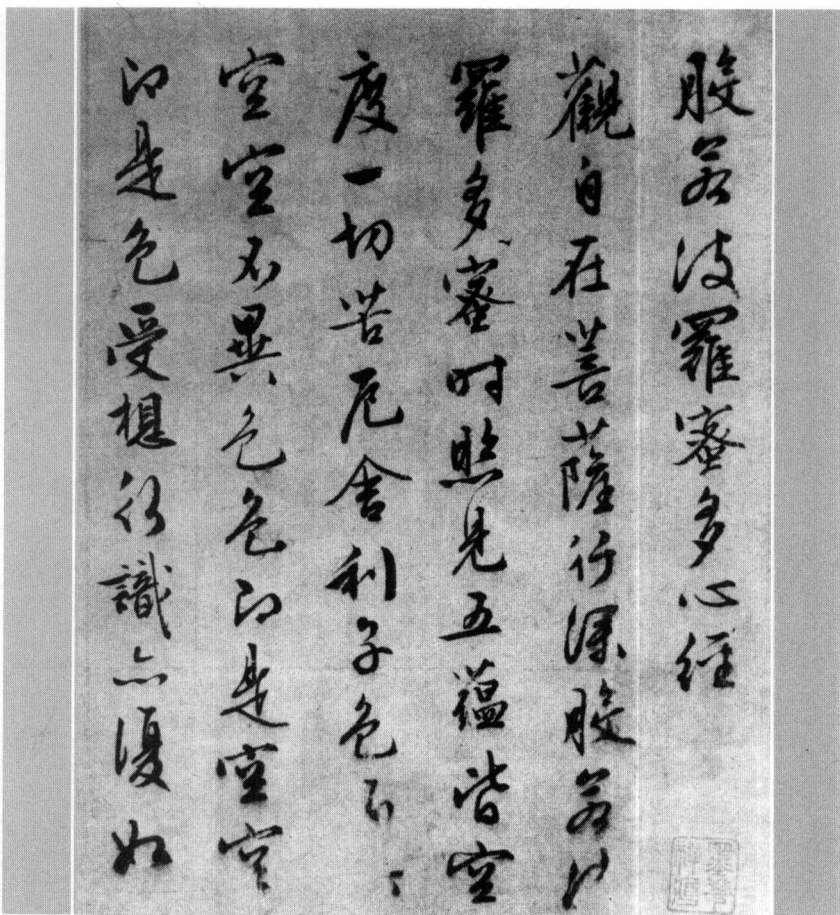 般若波羅蜜多心經
觀自在菩薩行深般若波
羅多蜜時照見五蘊皆空
度一切苦厄舍利子色不
空空不異色色即是空空
即是色受想行識亦復如